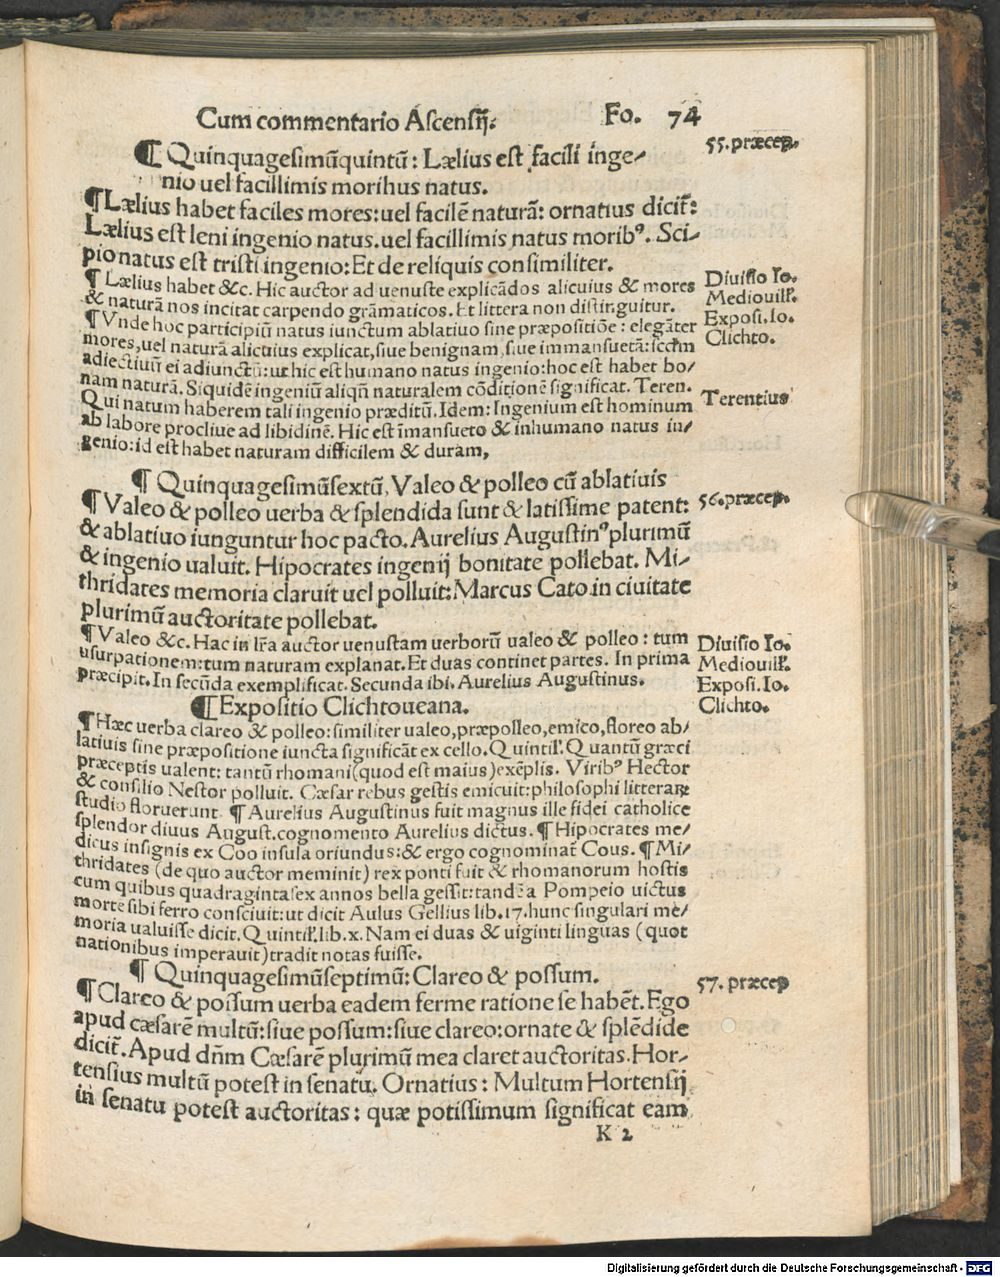 Cum commentario Ascensij.
Fo. 74
55. præcep.
¶ Quinquagesimũquintũ: Lælius est facili inge-
nio uel facillimis morihus natus.
¶ Lælius habet faciles mores: uel facilẽ naturã: ornatius dicit̃:
Lælius est leni ingenio natus. uel facillimis natus moribꝰ. Sci-
pio natus est tristi ingenio: Et de reliquis consimiliter.
¶ Lælius habet &c. Hic auctor ad uenuste explicãdos alicuius & mores
& naturã nos incitat carpendo grãmaticos. Et littera non distinguitur.
Diuisio Io.
Mediouill.
¶ Vnde hoc participiũ natus iunctum ablatiuo sine præpositiõe: elegãter
mores, uel naturã alicuius explicat, siue benignam, siue immansuetã: scd̃m
adiectiuũ ei adiunctũ: ut hic est humano natus ingenio: hoc est habet bo-
nam naturã. Siquidẽ ingeniũ aliqñ naturalem cõditionẽ significat. Teren.
Qui natum haberem tali ingenio præditũ. Idem: Ingenium est hominum
ab labore procliue ad libidinẽ. Hic est ĩmansueto & inhumano natus in-
genio: id est habet naturam difficilem & duram,
Exposi. Io.
Clichto.
Terentius
¶ Quinquagesimũsextũ, Valeo & polleo cũ ablatiuis
56. præcep.
¶ Valeo & polleo uerba & splendida sunt & latissime patent:
& ablatiuo iunguntur hoc pacto. Aurelius Augustinꝰ plurimũ
& ingenio ualuit. Hipocrates ingenij bonitate pollebat. Mi-
thridates memoria claruit uel polluit: Marcus Cato in ciuitate
plurimũ auctoritate pollebat.
¶ Valeo &c. Hac in lr̃a auctor uenustam uerborũ ualeo & polleo: tum
usurpationem: tum naturam explanat. Et duas continet partes. In prima
præcipit. In secũda exemplificat. Secunda ibi. Aurelius Augustinus.
Diuisio Io.
Mediouill.
Exposi. Io.
Clichto.
¶ Expositio Clichtoueana.
¶ Hæc uerba clareo & polleo: similiter ualeo, præpolleo, emico, floreo ab-
latiuis sine præpositione iuncta significãt excello. Quintil. Quantũ græci
præceptis ualent: tantũ rhomani (quod est maius) exẽplis. Viribꝰ Hector
& consilio Nestor polluit. Cæsar rebus gestis emicuit: philosophi litterarꝝ
studio floruerunt. ¶ Aurelius Augustinus fuit magnus ille fidei catholice
splendor diuus August. cognomento Aurelius dictus. ¶ Hipocrates me-
dicus insignis ex Coo insula oriundus: & ergo cognominat̃ Cous. ¶ Mi-
thridates (de quo auctor meminit) rex ponti fuit & rhomanorum hostis
cum quibus quadragintasex annos bella gessit: tandẽ a Pompeio uictus
morte sibi ferro consciuit: ut dicit Aulus Gellius lib. 17. hunc singulari me-
moria ualuisse dicit, Quintil. lib. x. Nam ei duas & uiginti linguas (quot
nationibus imperauit) tradit notas fuisse.
¶ Quinquagesimũseptimũ: Clareo & possum.
57. præcep
¶ Clareo & possum uerba eadem ferme ratione se habẽt. Ego
apud cæsarẽ multũ: siue possum: siue clareo: ornate & splẽdide
dicit̃. Apud dñm Cæsarẽ plurimũ mea claret auctoritas. Hor-
tensius multũ potest in senatu. Ornatius: Multum Hortensij
in senatu potest auctoritas: quæ potissimum significat eam
K 2
Digitalisierung gefördert durch die Deutsche Forschungsgemeinschaft - DFG